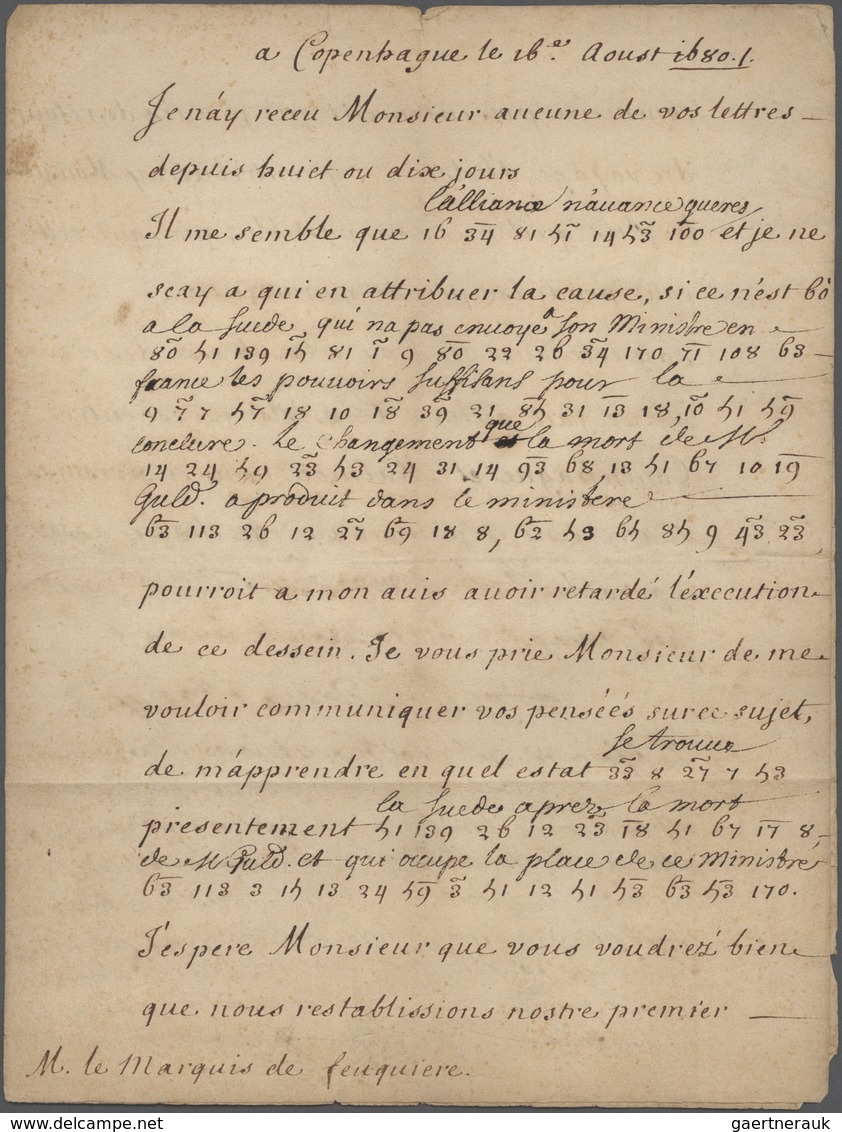 a Copenhague le 16.e Aoust 1680./.
Je náy receu Monsieur aucune de vos lettres
depuis huict ou dix jours
l'alliance n'auance queres
Il me semble que 16 3̄4̄ 81 5̃1 14 5̃3 1̄0̄0̄ et je ne
scay a qui en attribuer la cause, si ce n'est 60
a la Suede qui na pas enuoyé a son Ministre en
8̃0 51 139 1̃5 81 1̃ 9 8̄0̄ 22 26 3̃4 170 7̄1̄ 108 63
france les pouuoirs suffisans pour la
9 7̃ 7 5̃7 18 10 1̃8 3̃9 21 8̃5 31 1̄3̄ 18, 1̃0 51 5̃9
conclure. Le changement que la mort de Mr.
14 24 59 2̃3 5̃3 24 31 14 9̄3̄ 68, 13 51 67 10 1̃9
Guld. a produit dans le ministere
6̃3 113 26 12 2̃7 6̃9 18 8, 6̄2̄ 53 65 85 9 4̃3 2̃3
pourroit a mon auis auoir retardé l'éxecution
de ce dessein. Je vous prie Monsieur de me
vouloir communiquer vos penséés sur ce sujet,
se trouue
de m'apprendre en quel estat 3̃3 8 2̃7 7 5̄3̄
la Suede aprez la mort
presentement 51 139 26 12 2̃3 1̃8 51 67 1̄7̄ 8
de M Guld. et qui occupe la place de ce Ministre
6̃3 113 3 15 13 24 5̃9 3̃ 51 12 51 5̄3̄ 6̃3 5̄3̄ 170.
J'éspere Monsieur que vous voudrez bien
que nous restablissions nostre premier
M. le Marquis de feuquiere.
gaertnerauk